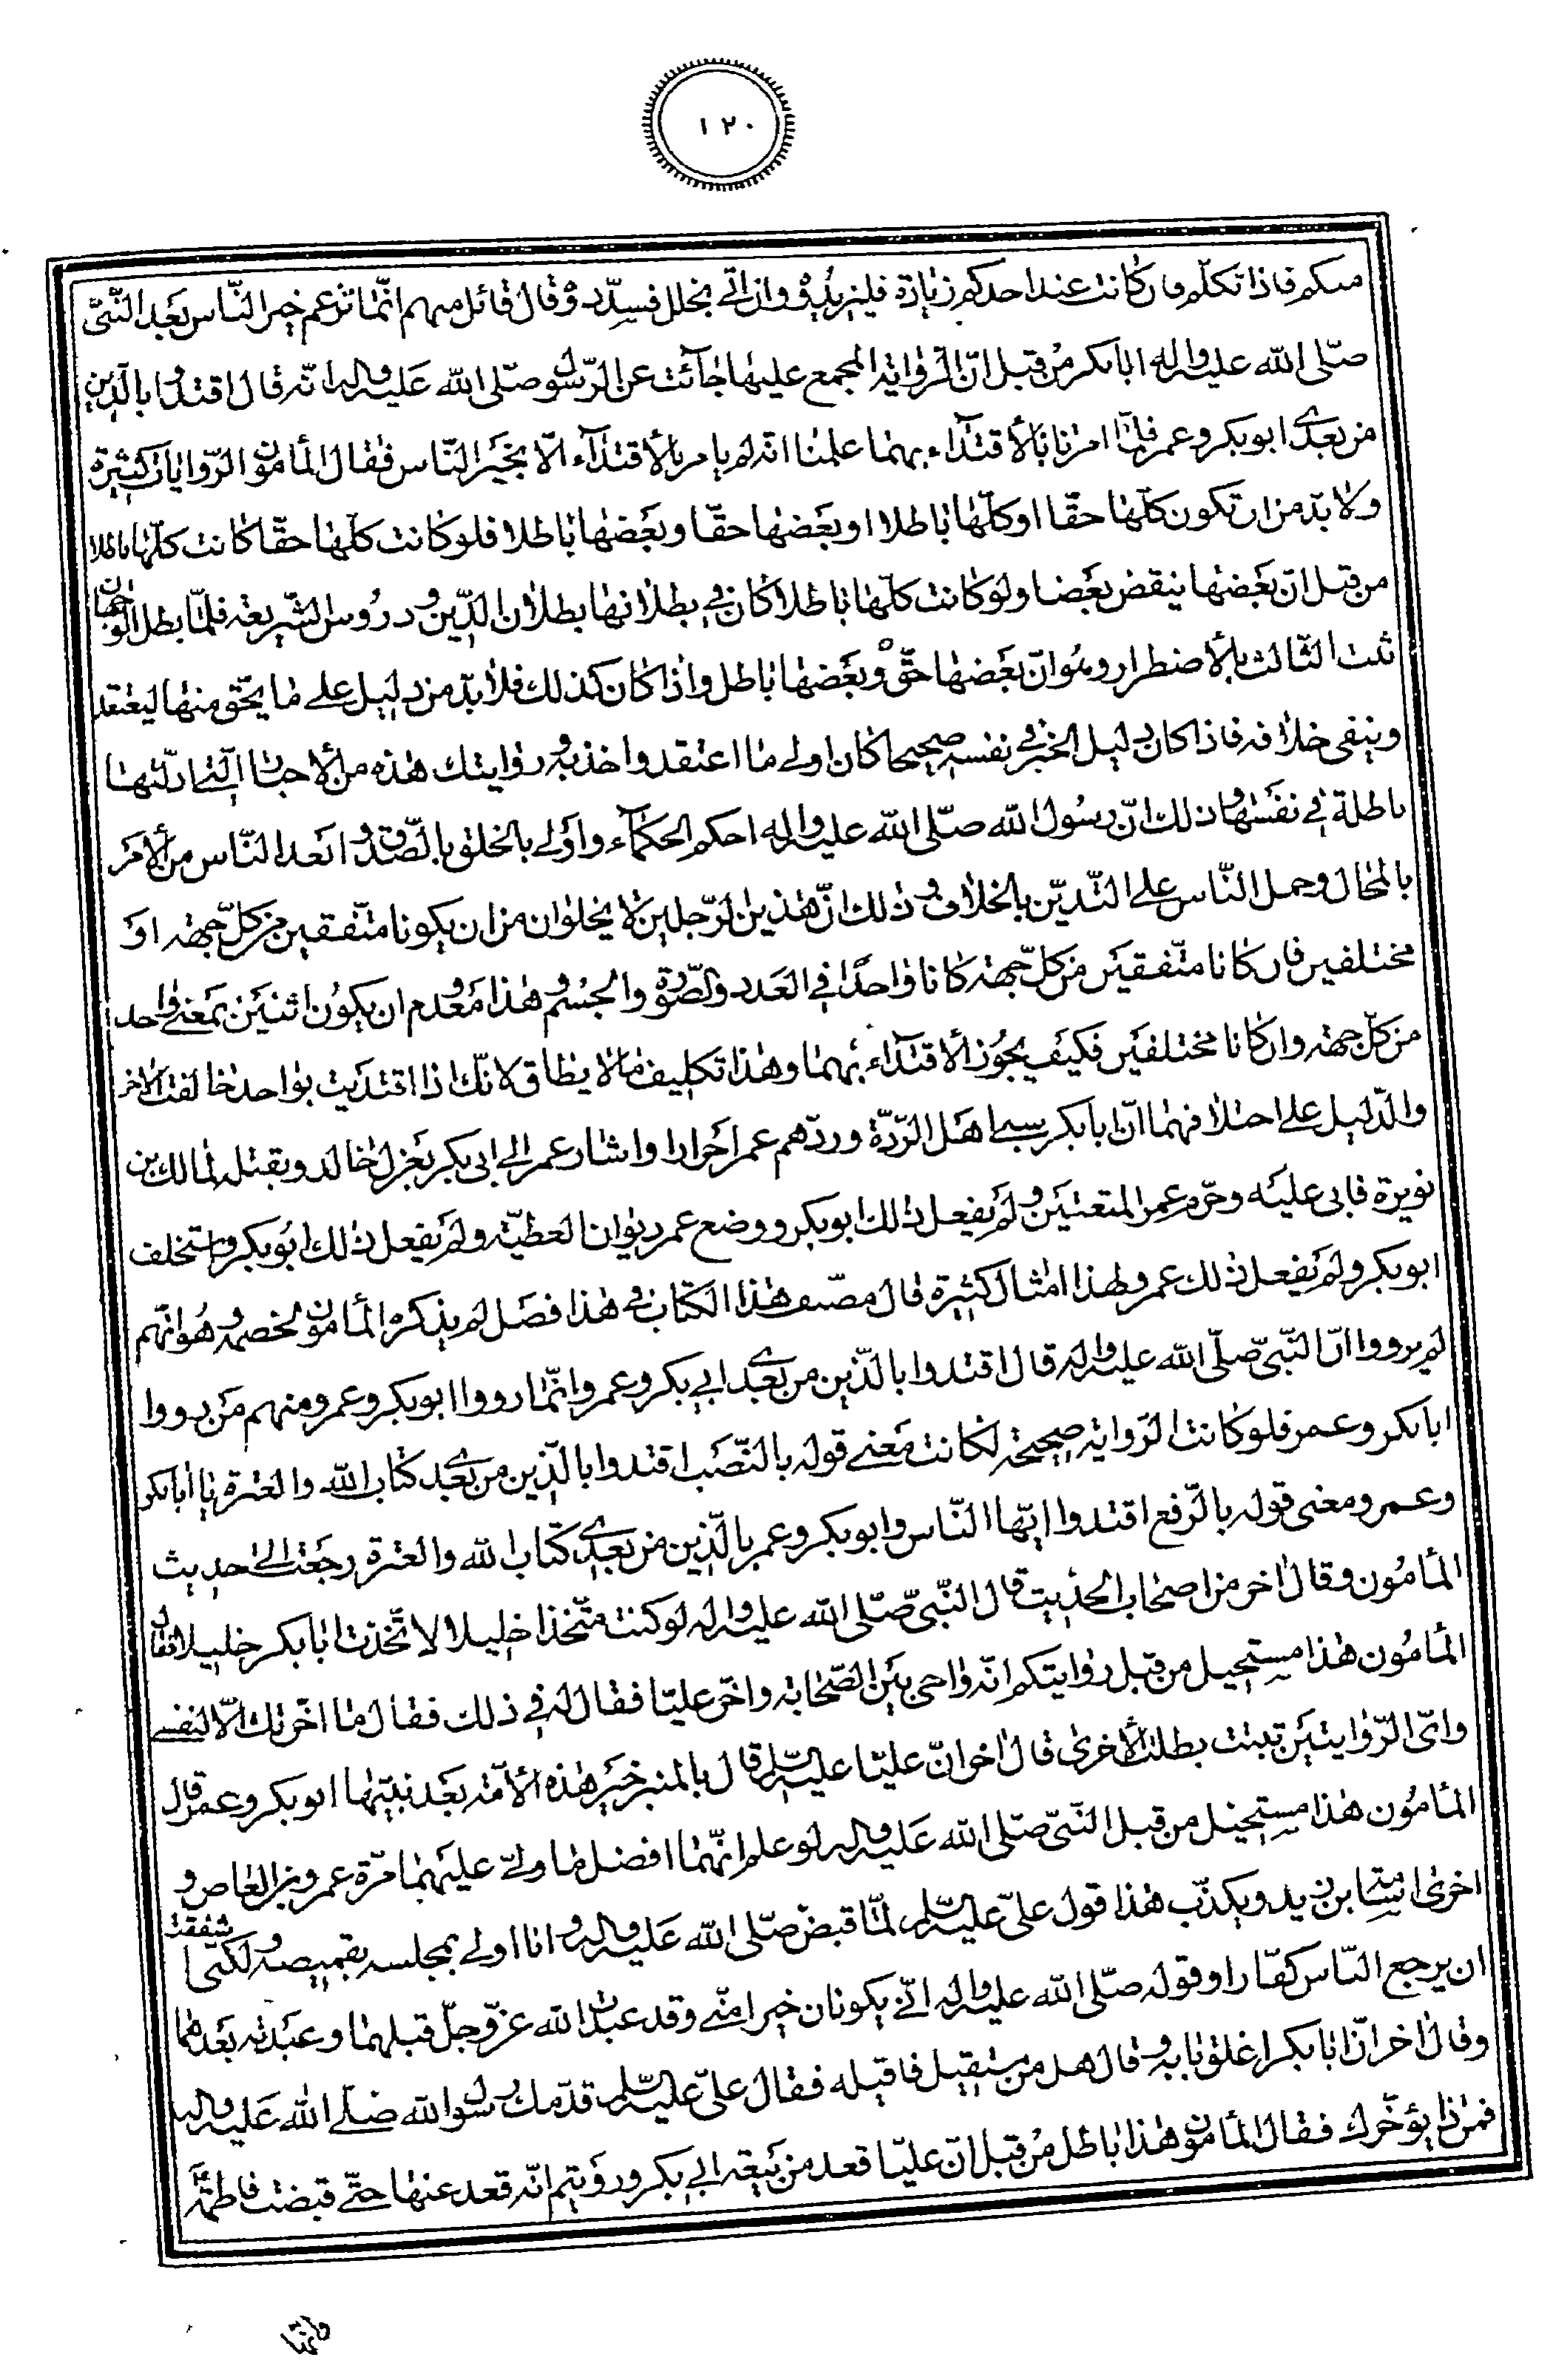 ١٢٠
منكم فاذا تكلّم فان كانت عند احدكم زيادة فليزدْ وان اتى بخلل فسدّدوه فقال قائل منهم انّما نزعم خير النّاس بعد النّبىّ
صلّى الله عليه واله ابابكر من قبل انّ الرّواية المجمع عليها جائت عن الرّسول صلّى الله عليه واله انّه قال اقتدوا بالّذين
من بعدى ابوبكر وعمر فلمّا امرنا بالأقتدآء بهما علمنا انّه لم يامر بالأقتدآء الّا بخير النّاس فقال المأمون الرّوايات كثيرة
ولا بدّ من ان تكون كلّها حقّا او كلّها باطلا او بعضها حقّا وبعضها باطلا فلو كانت كلّها حقّا كانت كلّها باطلا
من قبل انّ بعضها ينقض بعضا ولو كانت كلّها باطلا كان فى بطلانها بطلان الدّين ودروس الشّريعة فلمّا بطل الوجهان
ثبت الثّالث بالأضطرار وهو انّ بعضها حقّ وبعضها باطل واذا كان كذلك فلا بدّ من دليل على ما يحقّ منها ليعتقد
وينفى خلافه فاذا كان دليل الخبر فى نفسه صحيحا كان اولى ما اعتقد واخذ به وروايتك هذه من الأخبار الّتى ادلّتها
باطلة فى نفسها وذلك انّ رسول الله صلّى الله عليه واله احكم الحكمآء واولى بالخلق بالصّدق وابعد النّاس من الأمر
بالمحال وحمل النّاس على التّديّن بالخلاف وذلك انّ هذين الرّجلين لا يخلوان من ان يكونا متّفقين من كلّ جهة او
مختلفين فان كانا متّفقين من كلّ جهة كانا واحدًا فى العدد والصّورة والجسم وهذا معدوم ان يكون اثنين بمعنى واحد
من كلّ جهة وان كانا مختلفين فكيف يجوز الأقتدآء بهما وهذا تكليف ما لا يطاق لانّك اذا اقتديت بواحد خالفت الأخر
والدّليل على اختلافهما انّ ابابكر سبى اهل الرّدّة وردّهم عمر احرارا واشار عمر الى ابى بكر بعزل خالد وبقتله لمالك بن
نويرة فابى عليه وحرّم عمر المتعتين ولم يفعل ذلك ابوبكر ووضع عمر ديوان العطيّة ولم يفعل ذلك ابوبكر واستخلف
ابوبكر ولم يفعل ذلك عمر ولهذا امثال كثيرة قال مصنّف هذا الكتاب فى هذا فصل لم يذكره المأمون لخصمه وهو انّهم
لم يرووا انّ النّبىّ صلّى الله عليه واله قال اقتدوا بالّذين من بعدى ابى بكر وعمر وانّما رووا ابوبكر وعمر ومنهم من رووا
ابابكر وعمر فلو كانت الرّواية صحيحة لكانت معنى قوله بالنّصب اقتدوا بالّذين من بعدى كتاب الله والعترة يا ابابكر
وعمر ومعنى قوله بالرّفع اقتدوا ايّها النّاس وابوبكر وعمر بالّذين من بعدى كتاب الله والعترة رجعت الى حديث
المأمون وقال اخر من اصحاب الحديث قال النّبىّ صلّى الله عليه واله لو كنت متّخذا خليلا لاتّخذت ابابكر خليلا فقال
المأمون هذا مستحيل من قبل روايتكم انّه واحى بين الصّحابة واخّر عليّا فقال له فى ذلك فقال ما اخّرتك الّا لنفسى
واىّ الرّوايتين ثبتت بطلت الأخرى قال اخر انّ عليّا عليه السّلم قال بالمنبر خير هذه الأمّة بعد نبيّها ابوبكر وعمر قال
المأمون هذا مستحيل من قبل النّبىّ صلّى الله عليه واله لو علم انّهما افضل ما ولّى عليهما مرّة عمرو بن العاص و
اخرى اسامة بن زيد ويكذّب هذا قول علىّ عليه السّلم لمّا قبض صلّى الله عليه واله وانا اولى بمجلسه بقميصه ولكنّى شفقت
ان يرجع النّاس كفّارا وقوله صلّى الله عليه واله انّى يكونان خيرا منّى وقد عبدت الله عزّ وجلّ قبلهما وعبدته بعدهما
وقال اخر انّ ابابكر اغلق بابه وقال هل من مستقيل فاقيله فقال علىّ عليه السّلم قدّمك رسول الله صلّى الله عليه واله
فمن ذا يؤخّرك فقال المأمون هذا باطل من قبل انّ عليّا قعد من بيعة ابى بكر ورويتم انّه قعد عنها حتّى قبضت فاطمة